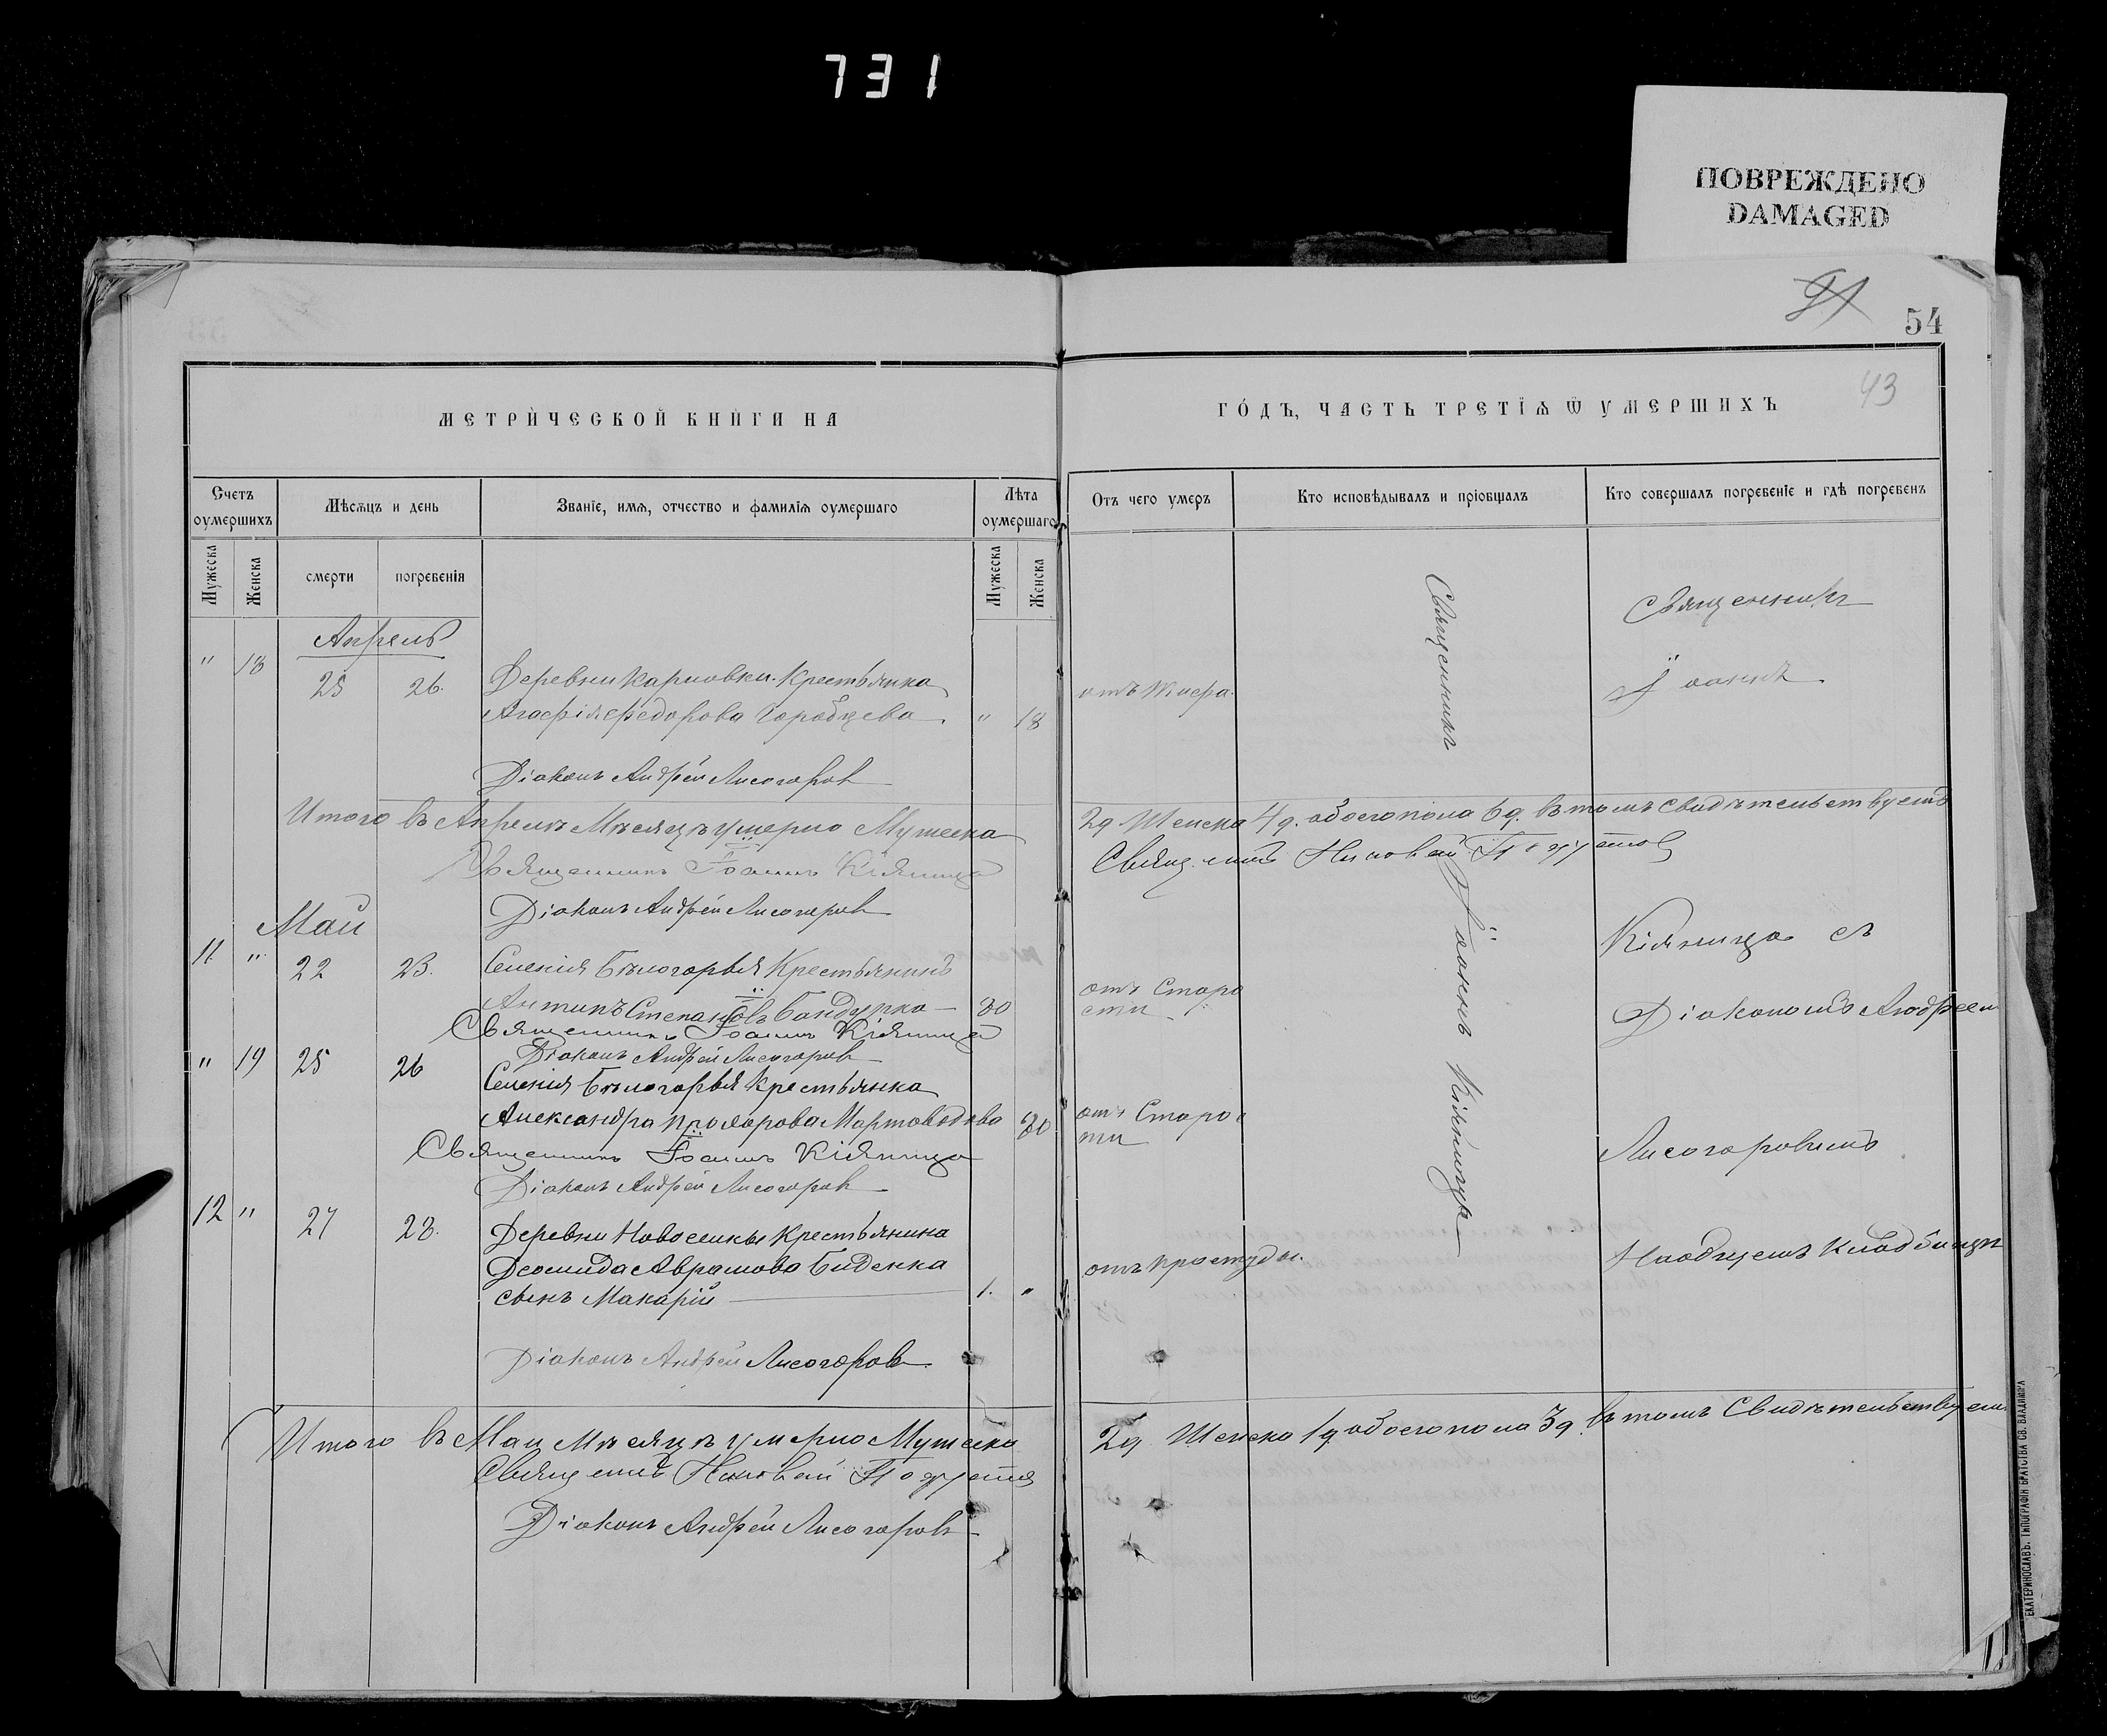 731
ПОВРЕЖДЕНО
DAMAGED
54
43
МЕТРИЧЕСКОЙ КНИГИ НА
ГОДЪ, ЧАСТЬ ТРЕТІѦ Ѿ УМЕРШИХЪ
Счетъ оумершихъ
Мѣсѧцъ и день
Званіе, имѧ, отчество и фамиліѧ оумершаго
Лѣта оумершаго
Отъ чего умеръ
Кто исповѣдывалъ и пріобщалъ
Кто совершалъ погребеніе и гдѣ погребенъ
Мужеска
Женска
смерти
погребенія
Мужеска
Женска
Апрель
" 18 25 26. Деревни Карповки Крестьянка
Агафія Федорова Горобцева " 18
Діаконъ Андрей Лисогоровъ
Итого въ Апрелѣ Мѣсяцѣ умерло Мужеска 2д Женска 4д. обоего пола 6д. въ томъ свидѣтельствуемъ
Священникъ Іоаннъ Кіяница
Діаконъ Андрей Лисогоровъ
Май
11. " 22 23. Селенія Бѣлогорья Крестьянинъ
Антипъ Степановъ Бандурка 80 отъ Старости
Священникъ Іоаннъ Кіяница
Діаконъ Андрей Лисогоровъ
" 19 25 26 Селенія Бѣлогорья Крестьянка
Александра 80 отъ Старости
Священникъ Іоаннъ Кіяница
Діаконъ Андрей Лисогоровъ
12 " 27 28. Деревни Новоселики Крестьянина
Деомида Аврамова Биденка
сынъ Макарій 1. " отъ простуды.
Діаконъ Андрей Лисогоровъ
Итого въ Маи Мѣсяцѣ умерло Мужеска 2д Женска 1д обоего пола 3д. въ томъ Свидѣтельствуемъ
Діаконъ Андрей Лисогоровъ
Священникъ Іоаннъ Кіяница
Священникъ
Іоаннъ
Кіяница съ
Діакономъ Андреем
Лисогоровымъ
На общемъ кладбищѣ
ЕКАТЕРИНОСЛАВЪ. ТИПОГРАФІЯ БРАТСТВА СВ. ВЛАДИМІРА